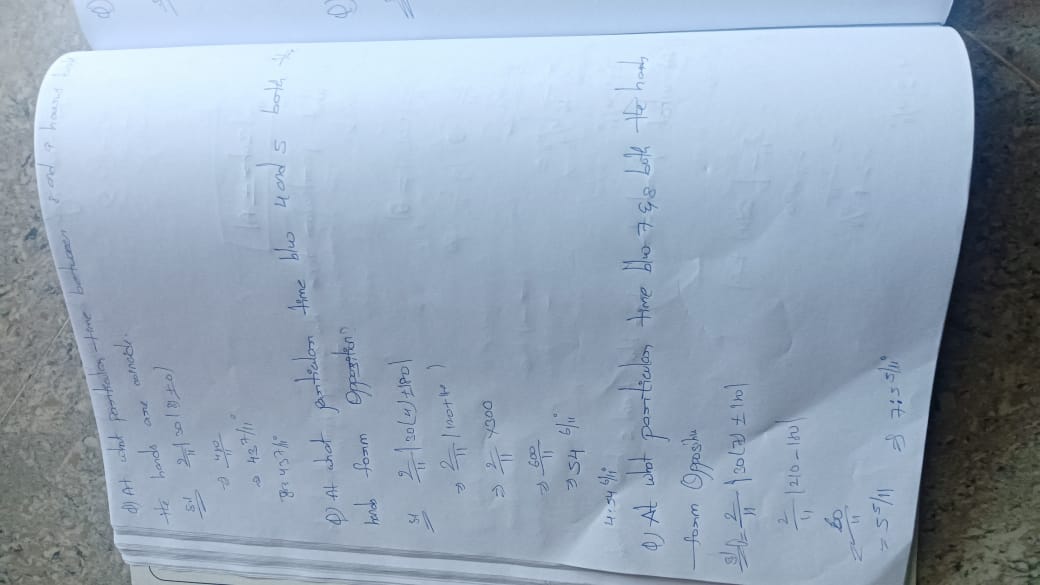 Q) At what particular time between 8 and 9 hours
the hands are coincide.
Sol 2/11 |30(8) ± 0|
⇒ 480/11
⇒ 43 7/11
8: 43 7/11
Q) At what particular time b/w 4 and 5 both the
hands form Opposition?
Sol 2/11 |30(4) ± 180|
⇒ 2/11
⇒ 2/11 × 300
⇒ 600/11
⇒ 54 6/11
4:54 6/11
Q) At what particular time b/w 7 & 8 both the hands
form Opposite
Sol 2/11 |30(7) ± 180|
2/11 |210 - 180|
60/11
= 5 5/11 ⇒ 7:5 5/11
Q)
Q)